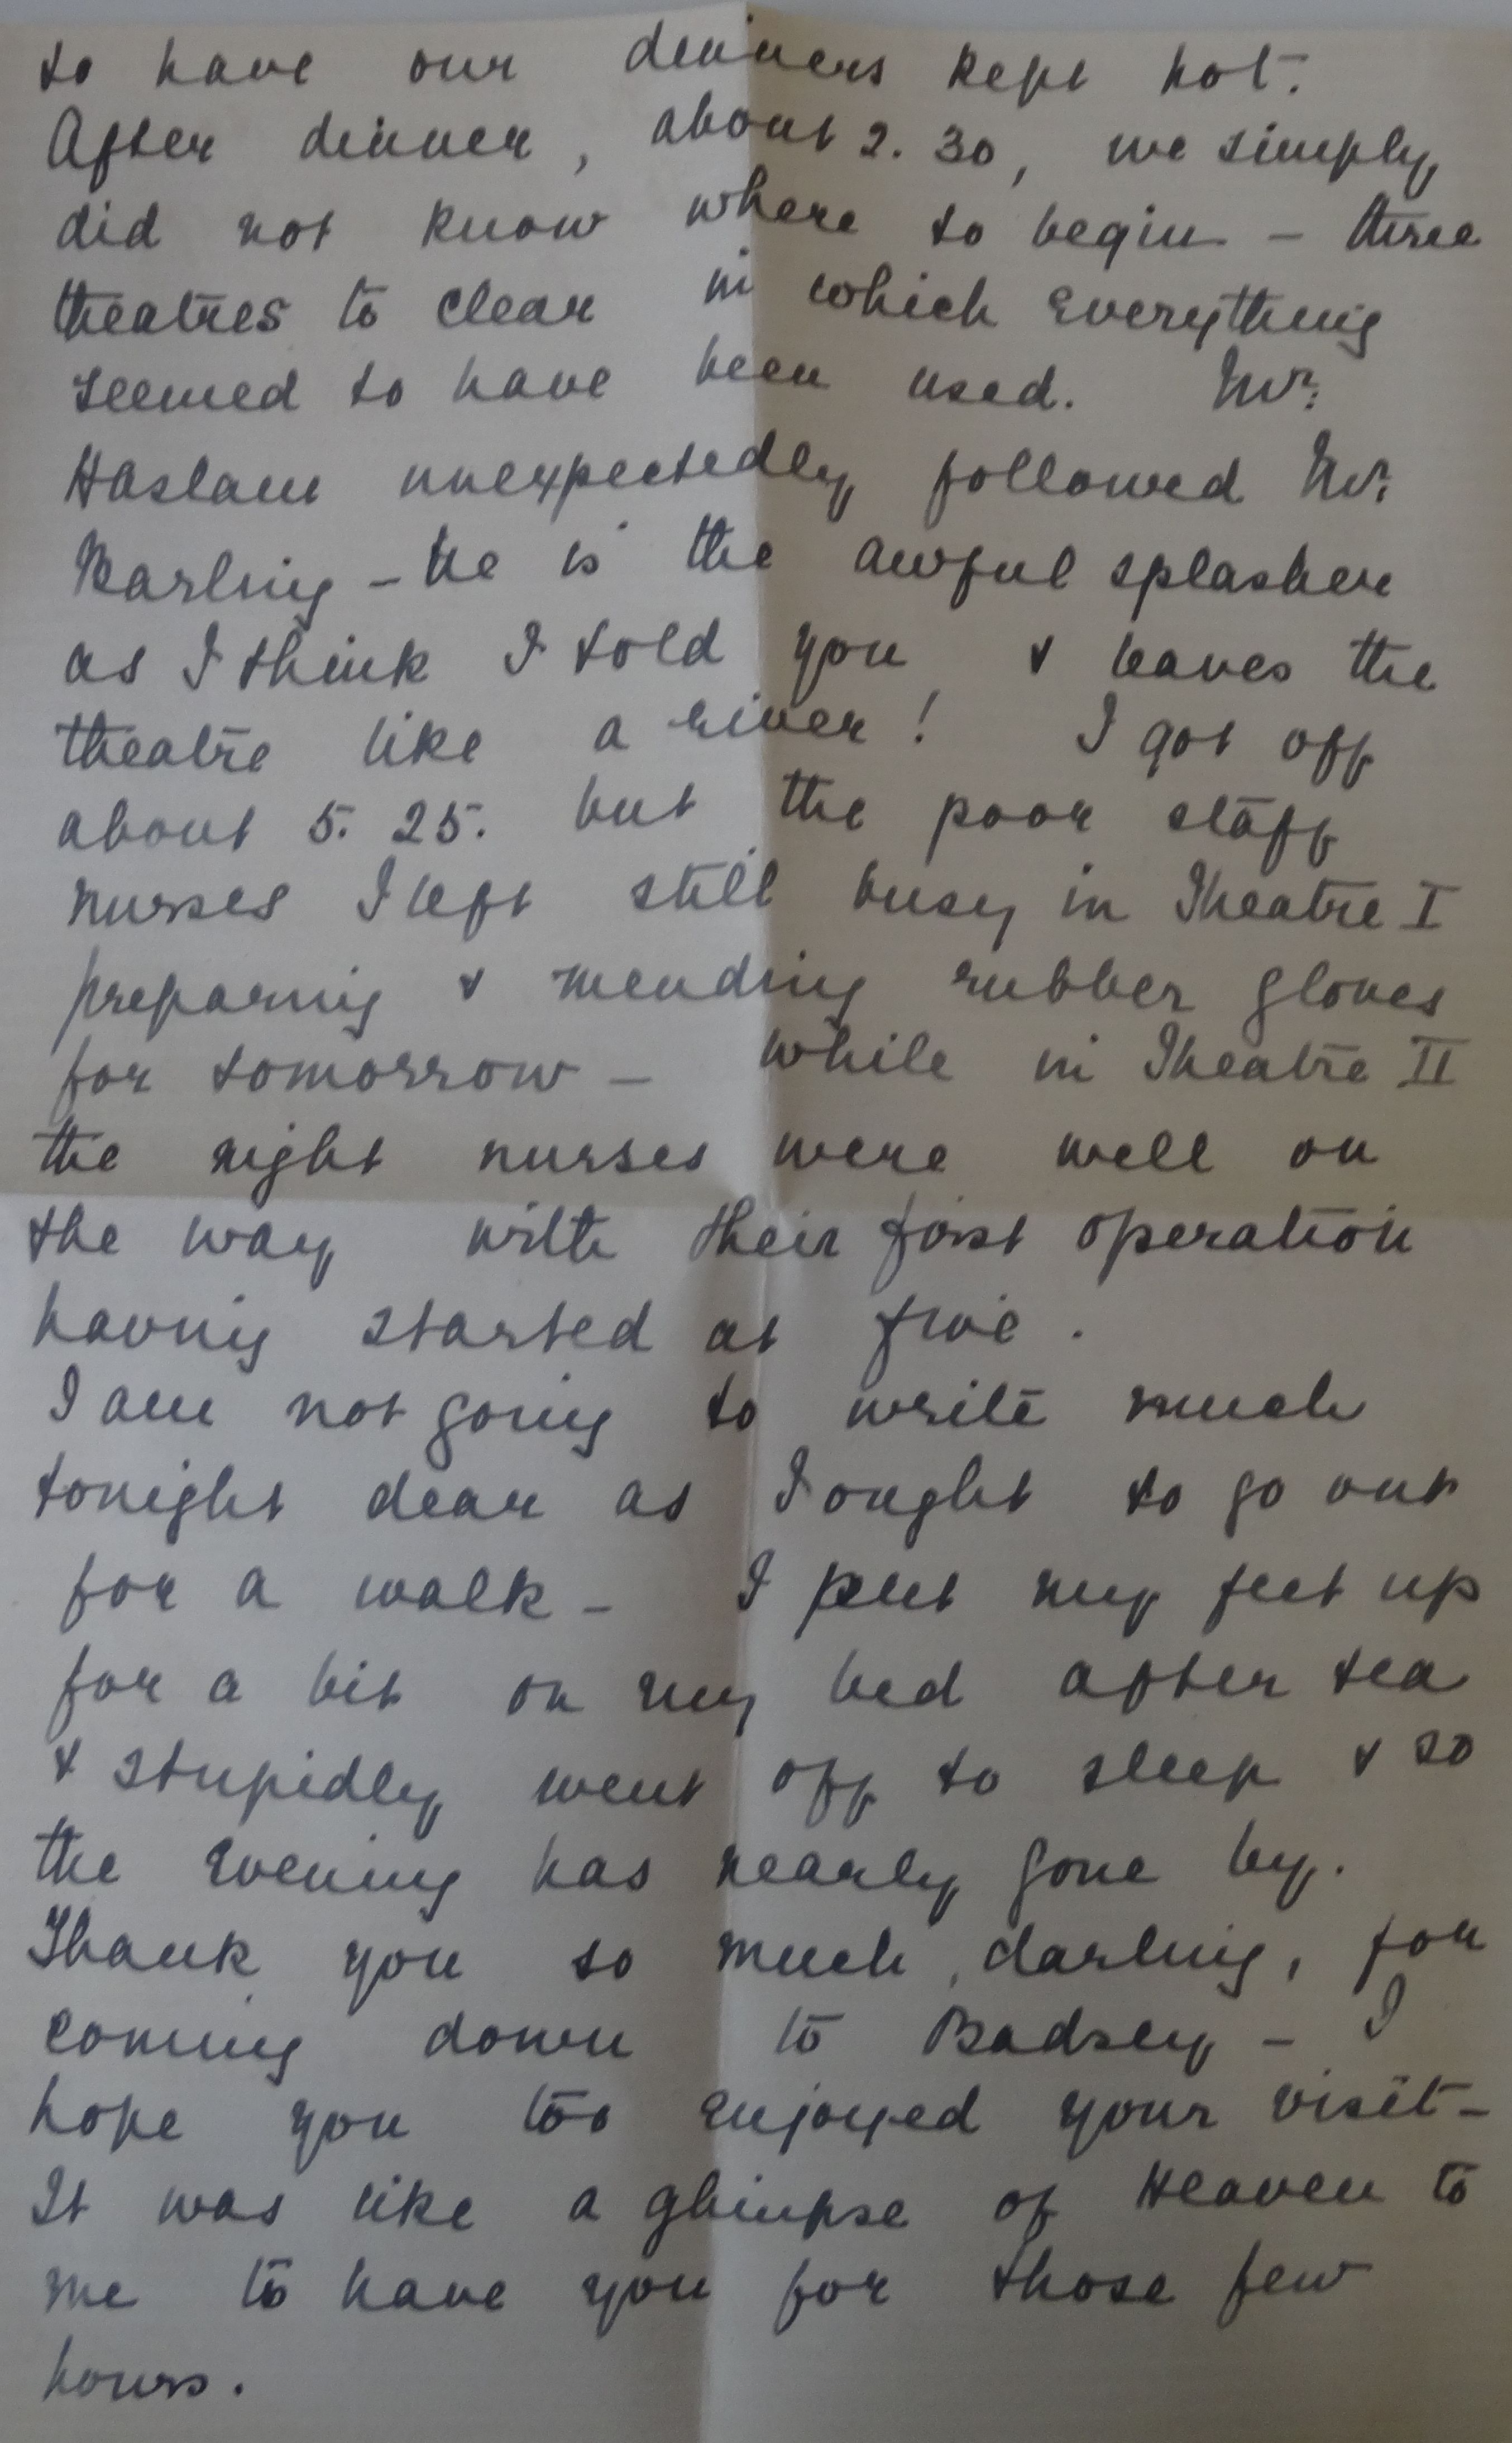 to have our dinners kept hot.
After dinner, about 2.30, we simply
did not know where to begin - three
theatres to clear in which everything
seemed to have been used. Mr.
Haslam unexpectedly followed Mr.
Barling - He is the awful splasher
as I think I told you & leaves the
theatre like a river! I got off
about 5.25. but the poor staff
nurses I left still busy in Theatre I
preparing & mending rubber gloves
for tomorrow - while in Theatre II
the night nurses were well on
the way with their first operation
having started at five.
I am not going to write much
tonight dear as I ought to go out
for a walk - I put my feet up
for a bit on my bed after tea
& stupidly went off to sleep & so
the evening has nearly gone by.
Thank you so much, darling, for
coming down to Badsey - I
hope you too enjoyed your visit -
It was like a glimpse of Heaven to
me to have you for those few
hours.